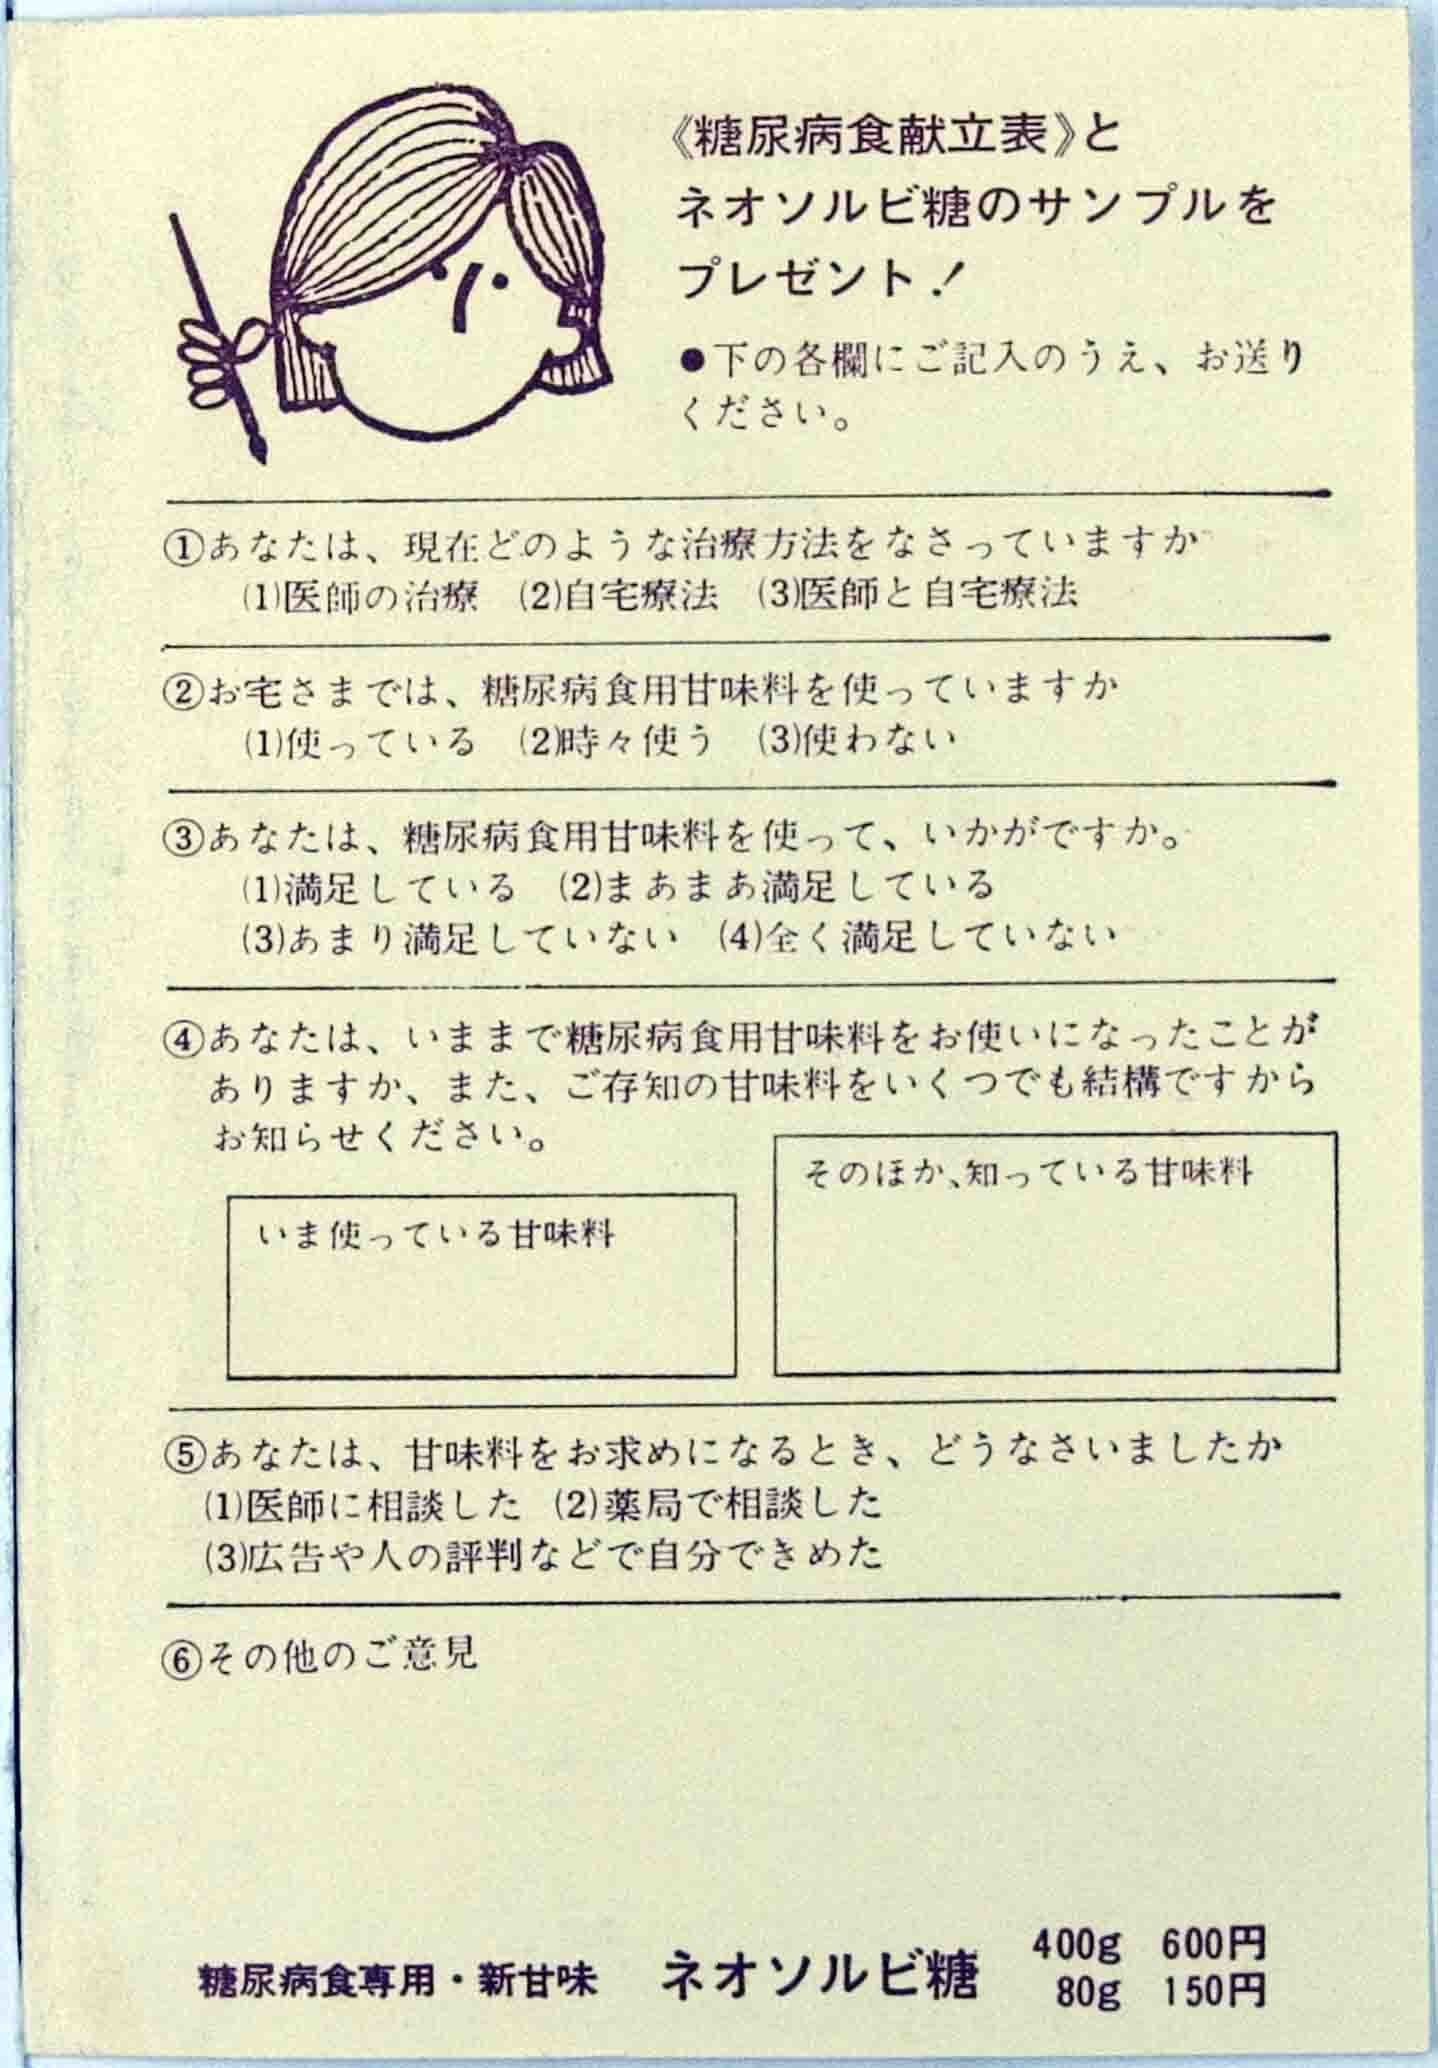 《糖尿病食献立表》と
ネオソルビ糖のサンプルを
プレゼント!
●下の各欄にご記入のうえ、お送り
ください。
①あなたは、現在どのような治療方法をなさっていますか
(1)医師の治療 (2)自宅療法 (3)医師と自宅療法
②お宅さまでは、糖尿病食用甘味料を使っていますか
(1)使っている (2)時々使う (3)使わない
③あなたは、糖尿病食用甘味料を使って、いかがですか。
(1)満足している (2)まあまあ満足している
(3)あまり満足していない (4)全く満足していない
④あなたは、いままで糖尿病食用甘味料をお使いになったことが
ありますか、また、ご存知の甘味料をいくつでも結構ですから
お知らせください。
いま使っている甘味料
そのほか、知っている甘味料
⑤あなたは、甘味料をお求めになるとき、どうなさいましたか
(1)医師に相談した (2)薬局で相談した
(3)広告や人の評判などで自分できめた
⑥その他のご意見
糖尿病食専用・新甘味 ネオソルビ糖
400g 600円
80g 150円